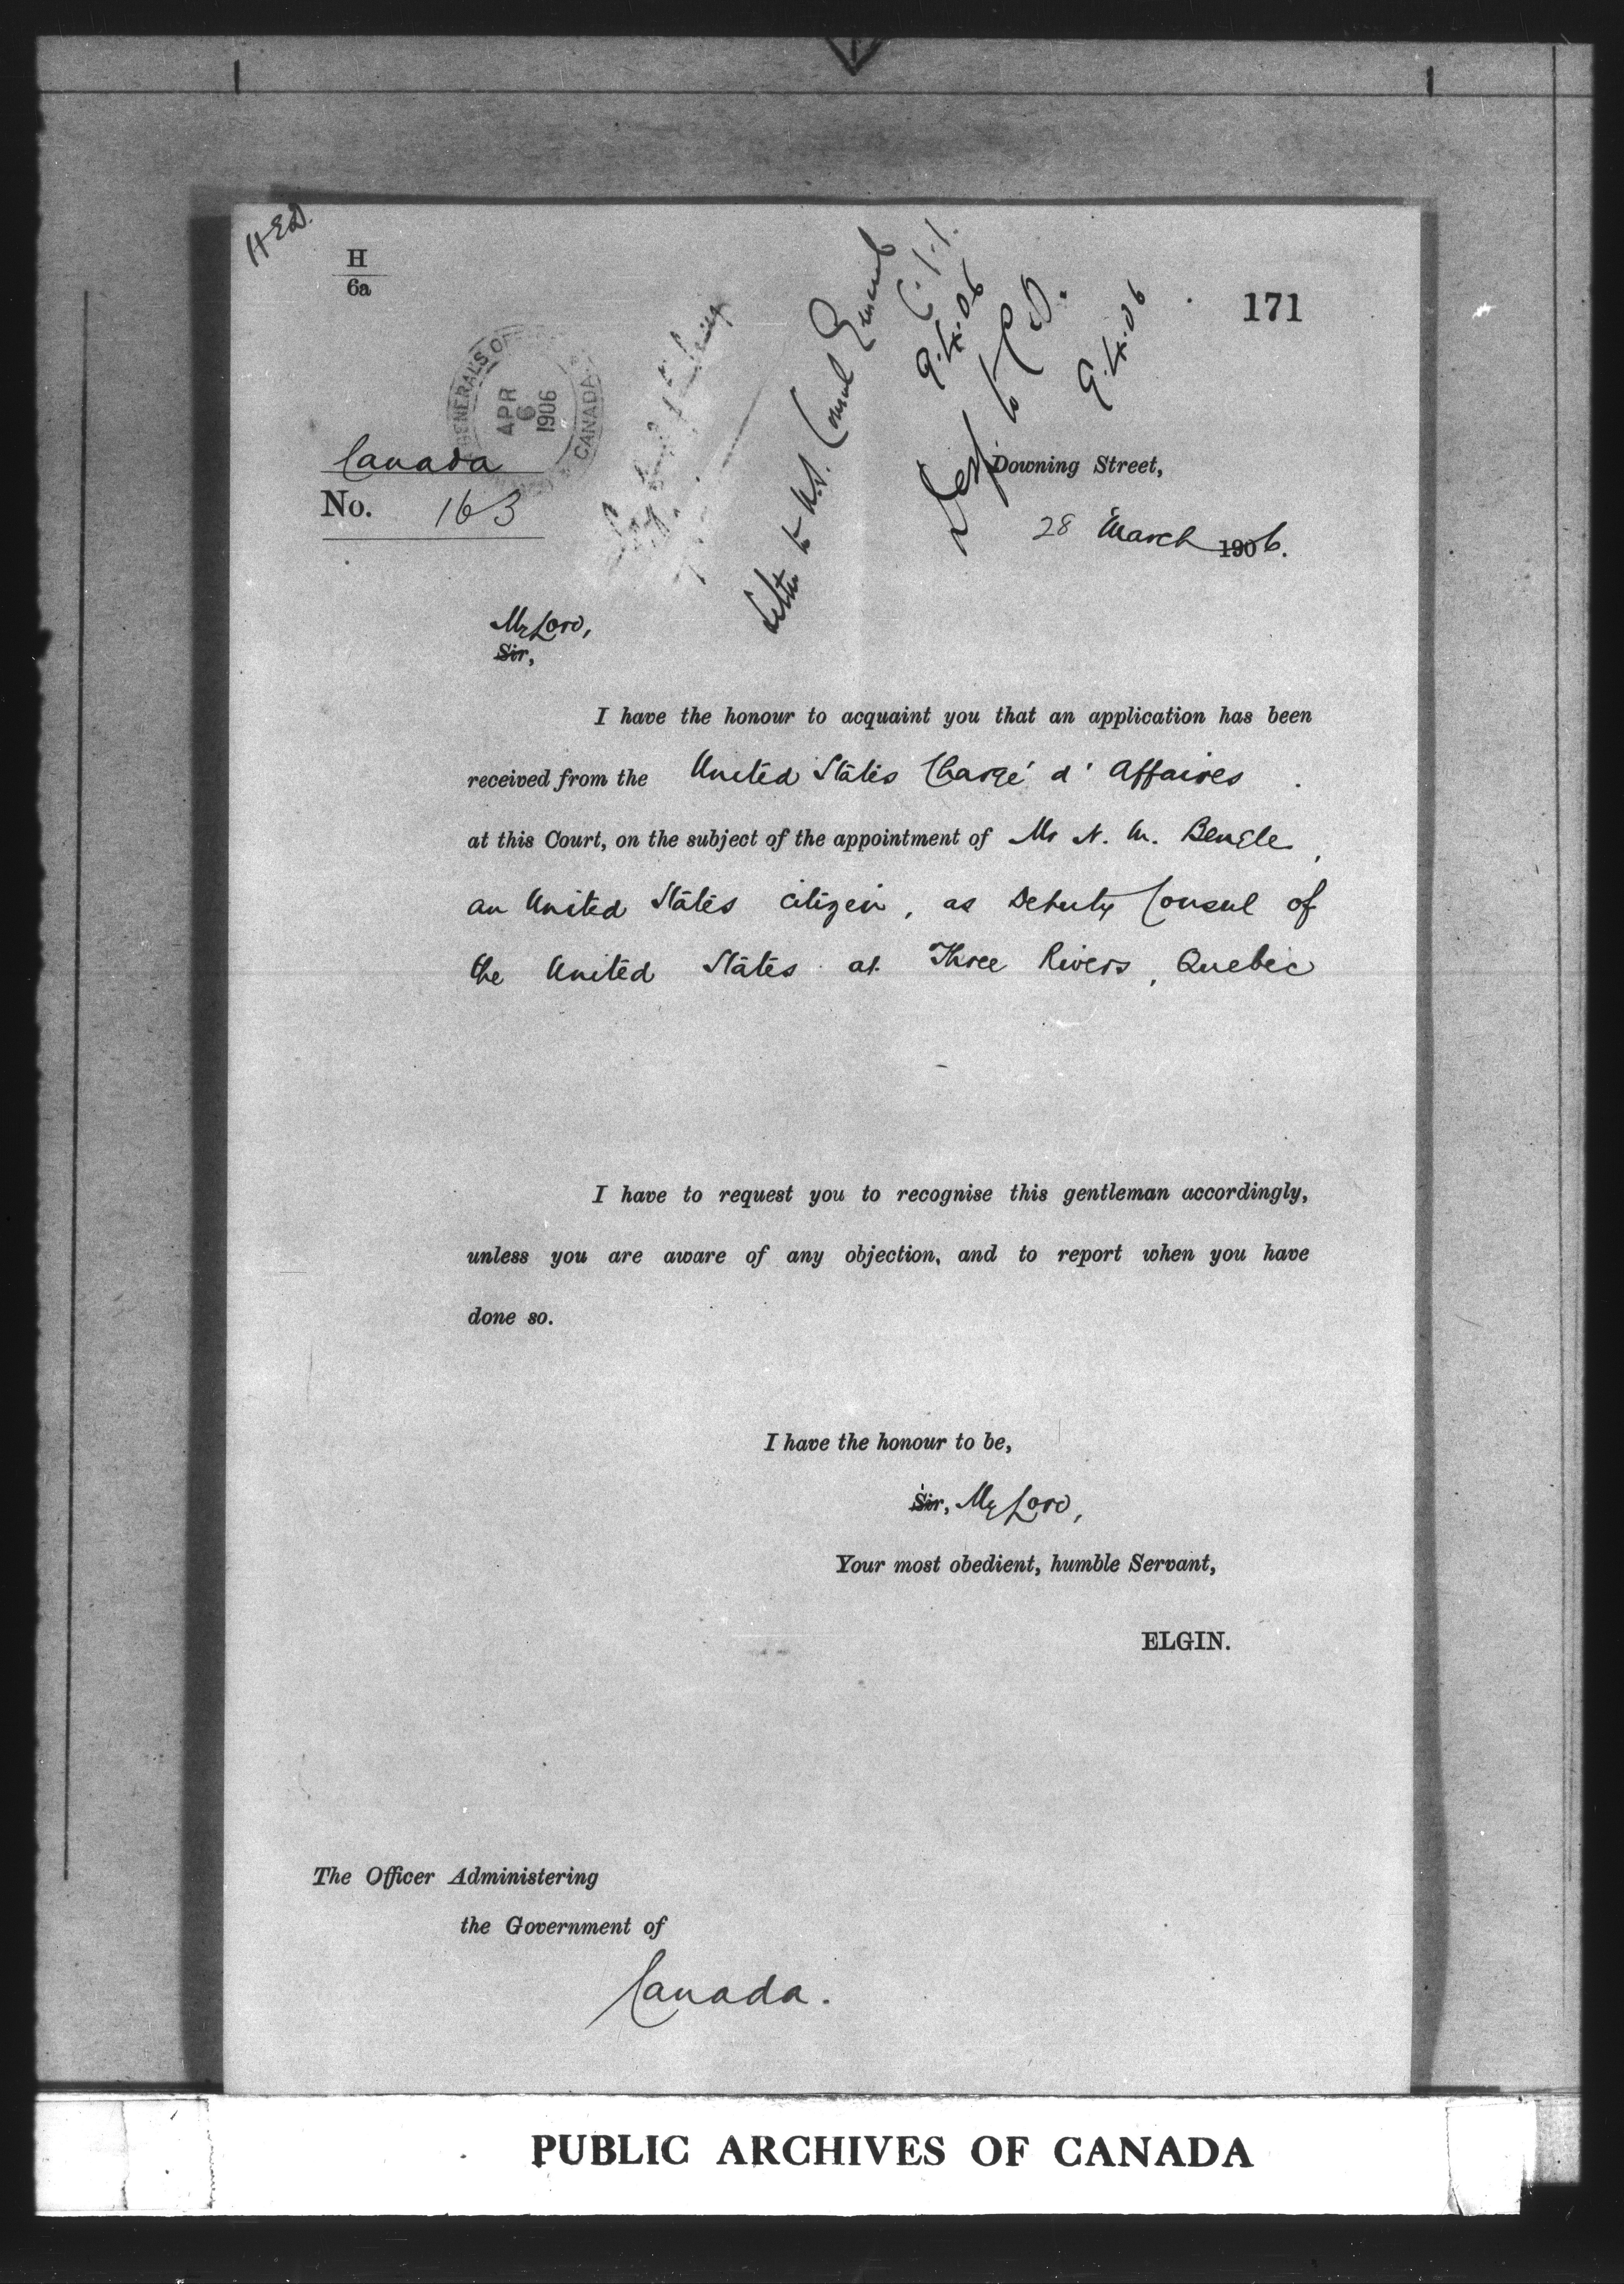 HED.
H
6a
171
GENERAL'S OF
APR
6
1906
CANADA
Letter to U.S. Consul General
9.4.06
Desp. to C.O.
9.4.06
Canada
No. 163
Downing Street,
28 March 1906.
My Lord,
Sir,
I have the honour to acquaint you that an application has been
received from the United States Chargé d'Affaires
at this Court, on the subject of the appointment of Mr N. M. Beagle,
an United States citizen, as Deputy Consul of
the United States at Three Rivers, Quebec
I have to request you to recognise this gentleman accordingly,
unless you are aware of any objection, and to report when you have
done so.
I have the honour to be,
Sir, My Lord,
Your most obedient, humble Servant,
ELGIN.
The Officer Administering
the Government of
Canada.
PUBLIC ARCHIVES OF CANADA